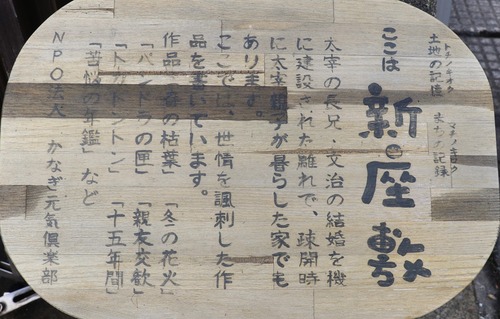 トチノキオク
土地の記憶
マチノキロク
まちの記録
ここは
新座敷
太宰の長兄・文治の結婚を機
に建設された離れで、疎開時
に太宰親子が暮らした家でも
あります。
ここでは、世情を諷刺した作
品を書いています。
作品「春の枯葉」「冬の花火」
「パンドラの匣」「親友交歓」
「トカトントン」「十五年間」
「苦悩の年鑑」など
NPO法人 かなぎ元気倶楽部